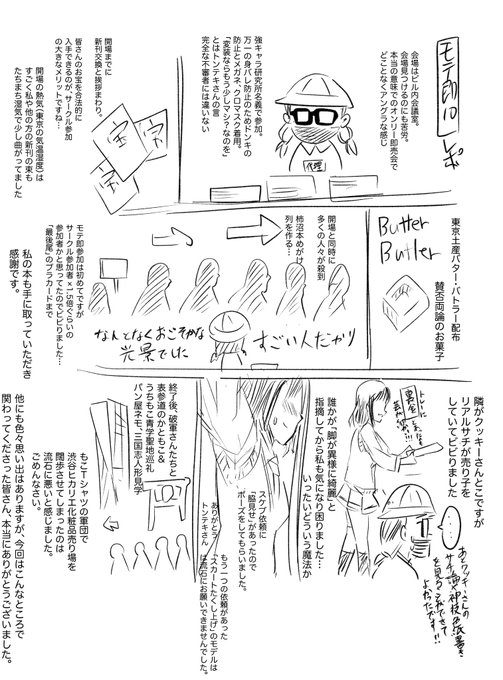 モテ即10
レポ
会場はビル内会議室。
会場見つけるのにも苦労。
本当の意味でのオンリー即売会で
どことなくアングラな感じ
強キャラ研究所名義で参加。
万一の身バレ防止のためドンキの
防止とメガネ、クロマスク着用。
「変装ならもう少しマシ？なのを」
とはトンテキさんの言
完全な不審者には違いない
代理
開場までに
新刊交換と挨拶まわり。
皆さんのお宝を合法的に
入手できるのが、サークル参加
の大きなメリットですね…
宝
宝
開場の熱気(東京の気温湿度)は
すごく私や他の方の新刊の束も
たちまち湿気で少し曲がってました
東京土産バター・バトラー配布
賛否両論のお菓子
Butter
Butler
開場と同時に
多くの人々が殺到
柿沼本めがけ
列を作る…
すごい人だかり
なんとなくおごそかな
光景でした
モテ即参加は初めてですが
サークル参加者×1.5倍ぐらいの
参加者かと思ってたのでビビりました…
「最後尾」のプラカードまで
私の本も手に取っていただき
感謝です。
隣がクッキーさんとこですが
リアルサチが売り子を
していてビビりました
誰かが「脚が異様に綺麗」と
指摘してから私も気になり困りました…
いったいどういう魔法か
スケブ依頼に
「脇見せ」があったので
ポーズをしてもらいました。
ありがとう
トンテキさん
もう一つの依頼があった
「スカートたくし上げ」のモデルは
は流石にお願いできませんでした。
終了後、破軍さんたちと
表参道のかともこ&
うちもこ青学聖地巡礼
パン屋ネモ、三国志人形見学
もこTシャツの軍団で
渋谷ヒカリエ化粧品売り場を
闊歩させてしまったのは
流石に悪いと感じました。
ごめんなさい。
他にも色々思い出はありますが、今回はこんなところで
関わってくださった皆さん、本当にありがとうございました。